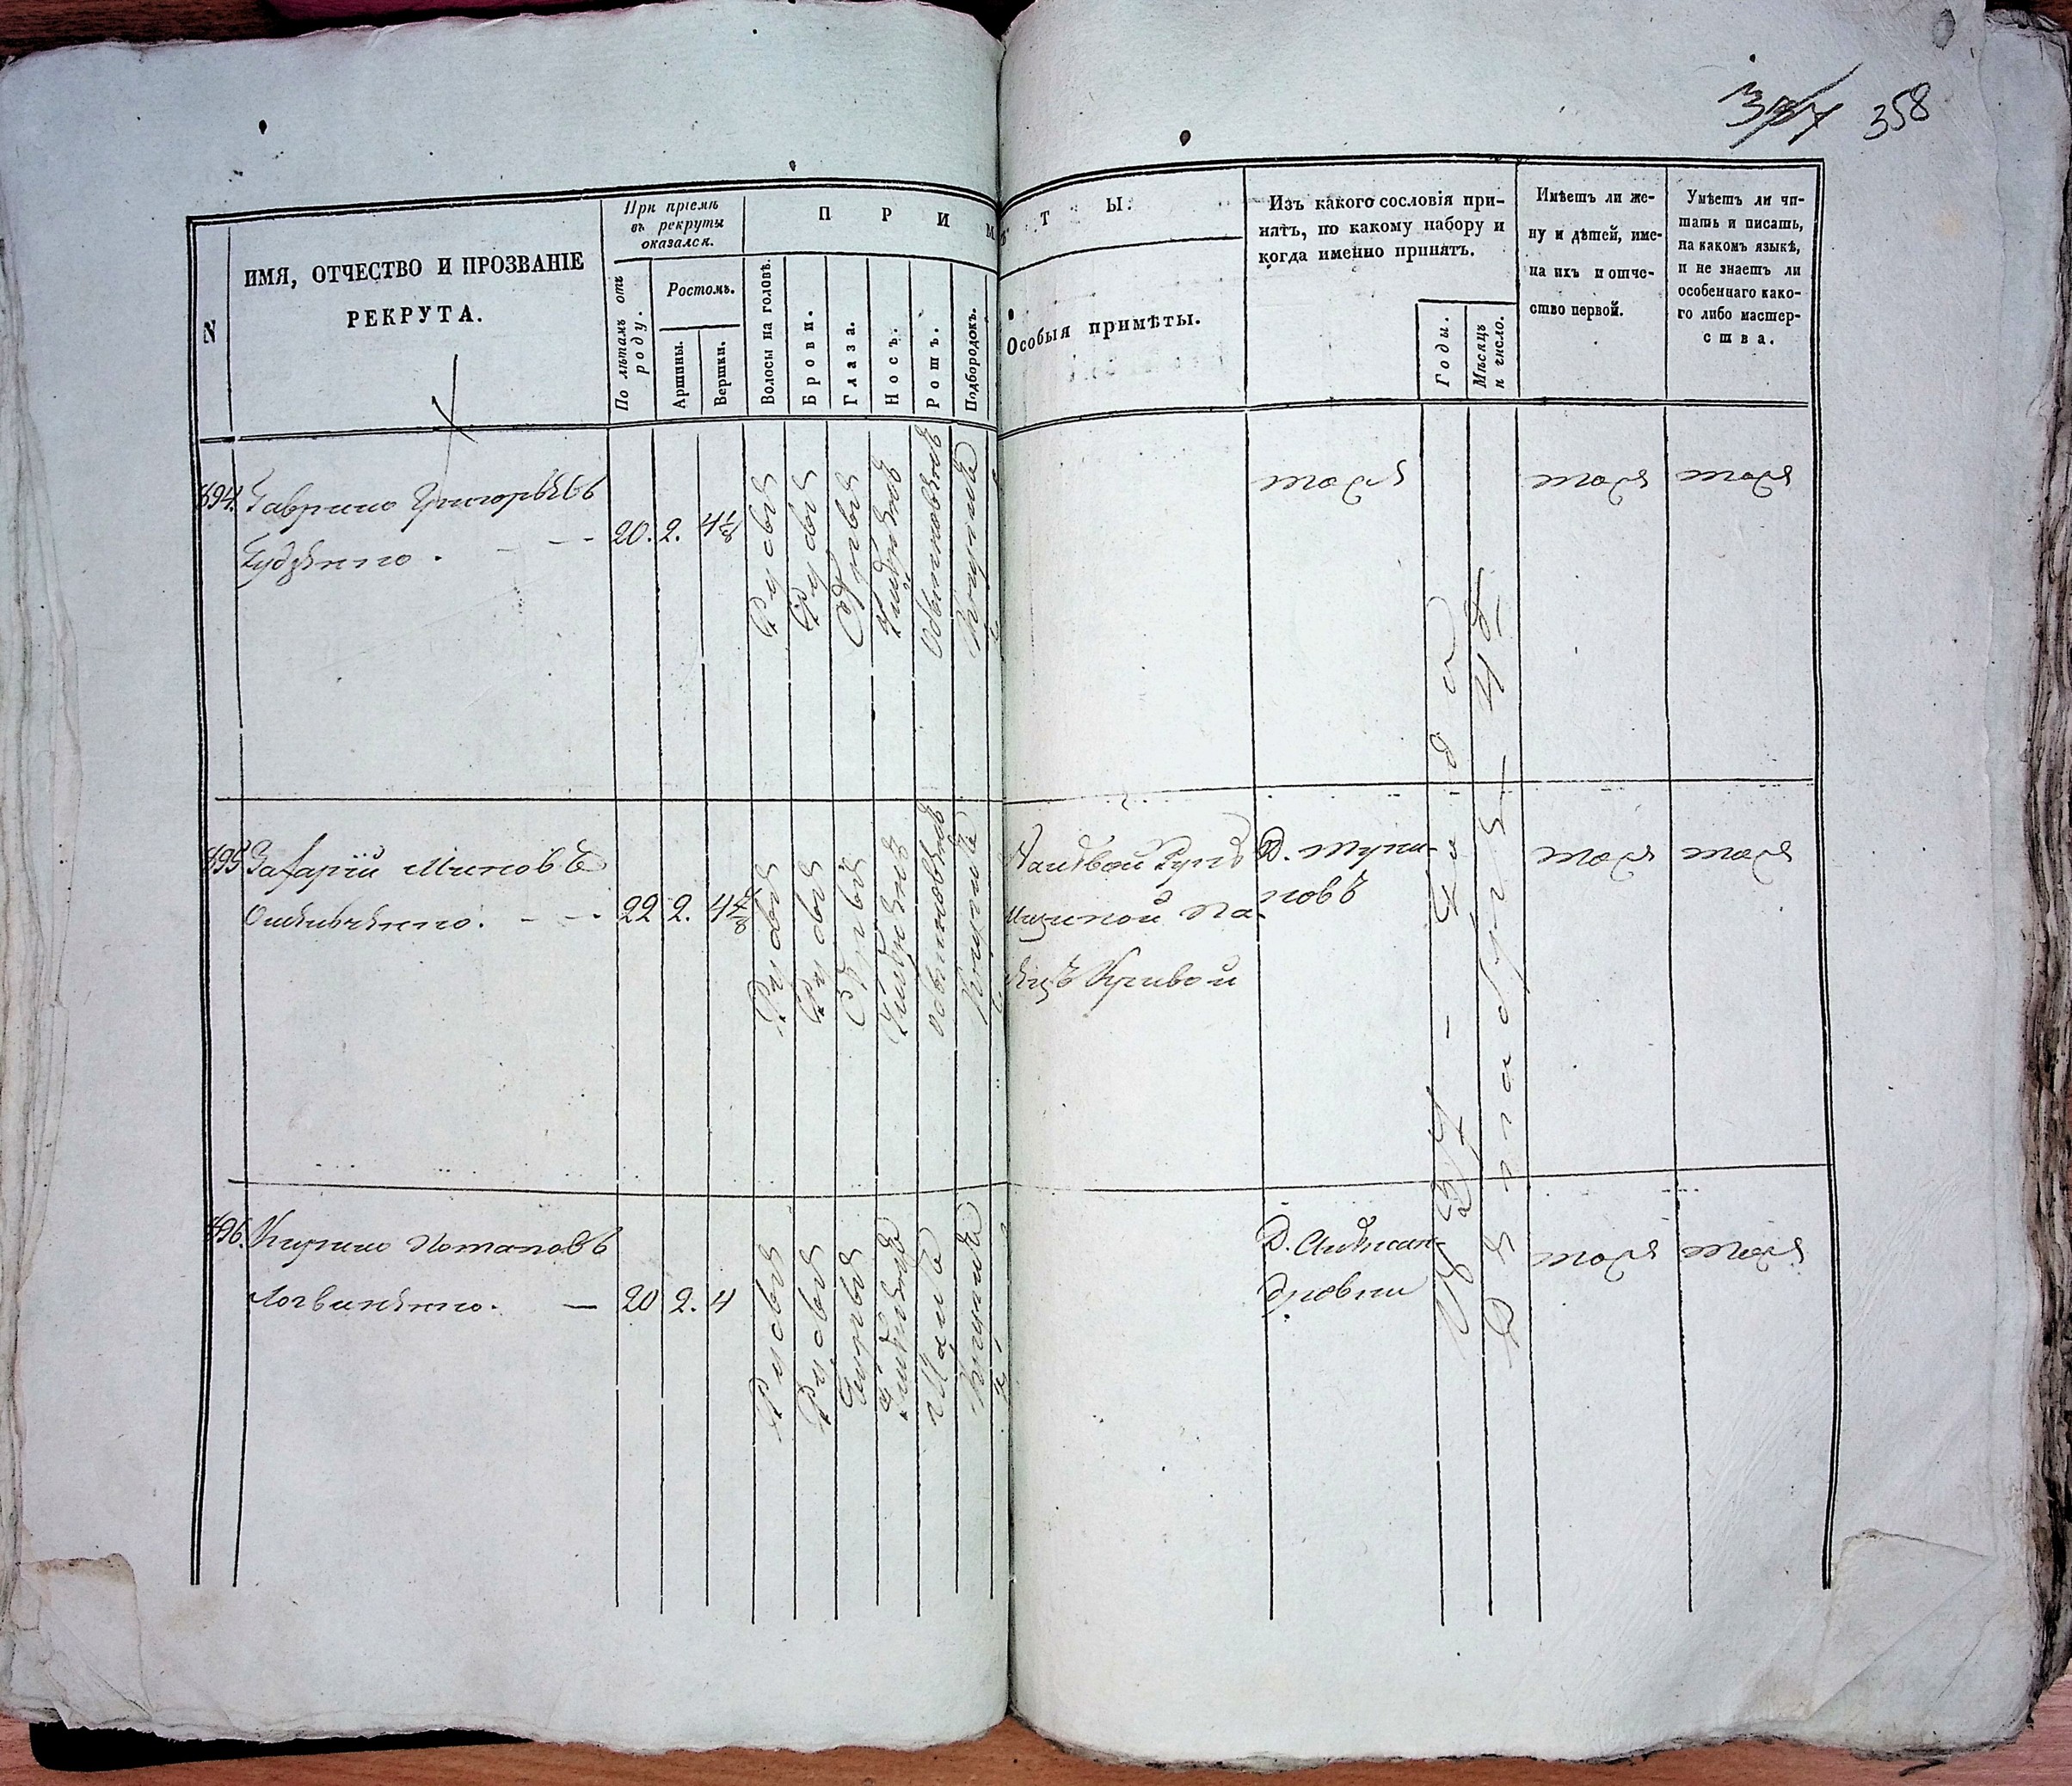 358
N
ИМЯ, ОТЧЕСТВО И ПРОЗВАНІЕ
РЕКРУТА.
При пріемѣ
въ рекруты
оказался.
По лѣтамъ отъ
роду.
Ростомъ.
Аршины.
Вершки.
П Р И М
Волосы на головѣ.
Брови.
Глаза.
Носъ.
Ротъ.
Подбородокъ.
Ѣ Т Ы.
Особыя примѣты.
Изъ какого сословія при-
нятъ, по какому набору и
когда именно принятъ.
Годы.
Мѣсяцъ
и число.
Имѣетъ ли же-
ну и дѣтей, име-
на ихъ и отче-
ство первой.
Умѣетъ ли чи-
тать и писать,
на какомъ языкѣ,
и не знаетъ ли
особеннаго како-
го либо мастер-
ства.
Гаврило Григорьевъ
20. 2. 4⅛
Русыя
Русыя
Сѣрыя
Умѣренъ
Обыкновенъ
Круглъ
тоже
тоже
тоже
Захарій Миновъ
22 2. 4 4/8
Русыя
Русыя
Сѣрыя
Умѣренъ
Обыкновенъ
Круглъ
На лѣвой рукѣ
мизиной па-
лецъ кривой
тоже
тоже
Кирило Потаповъ
Логвиненко. — 20 2. 4
Русыя
Русыя
Умѣренъ
Малъ
Круглъ
Д. Александровки
тоже
тоже
1834 - Года
Декабря